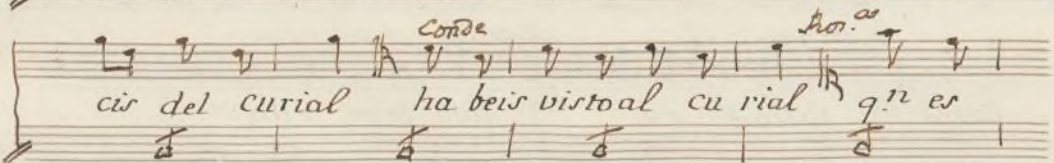 Conde Ror.as
cis del curial ha beis visto al cu rial q.n es